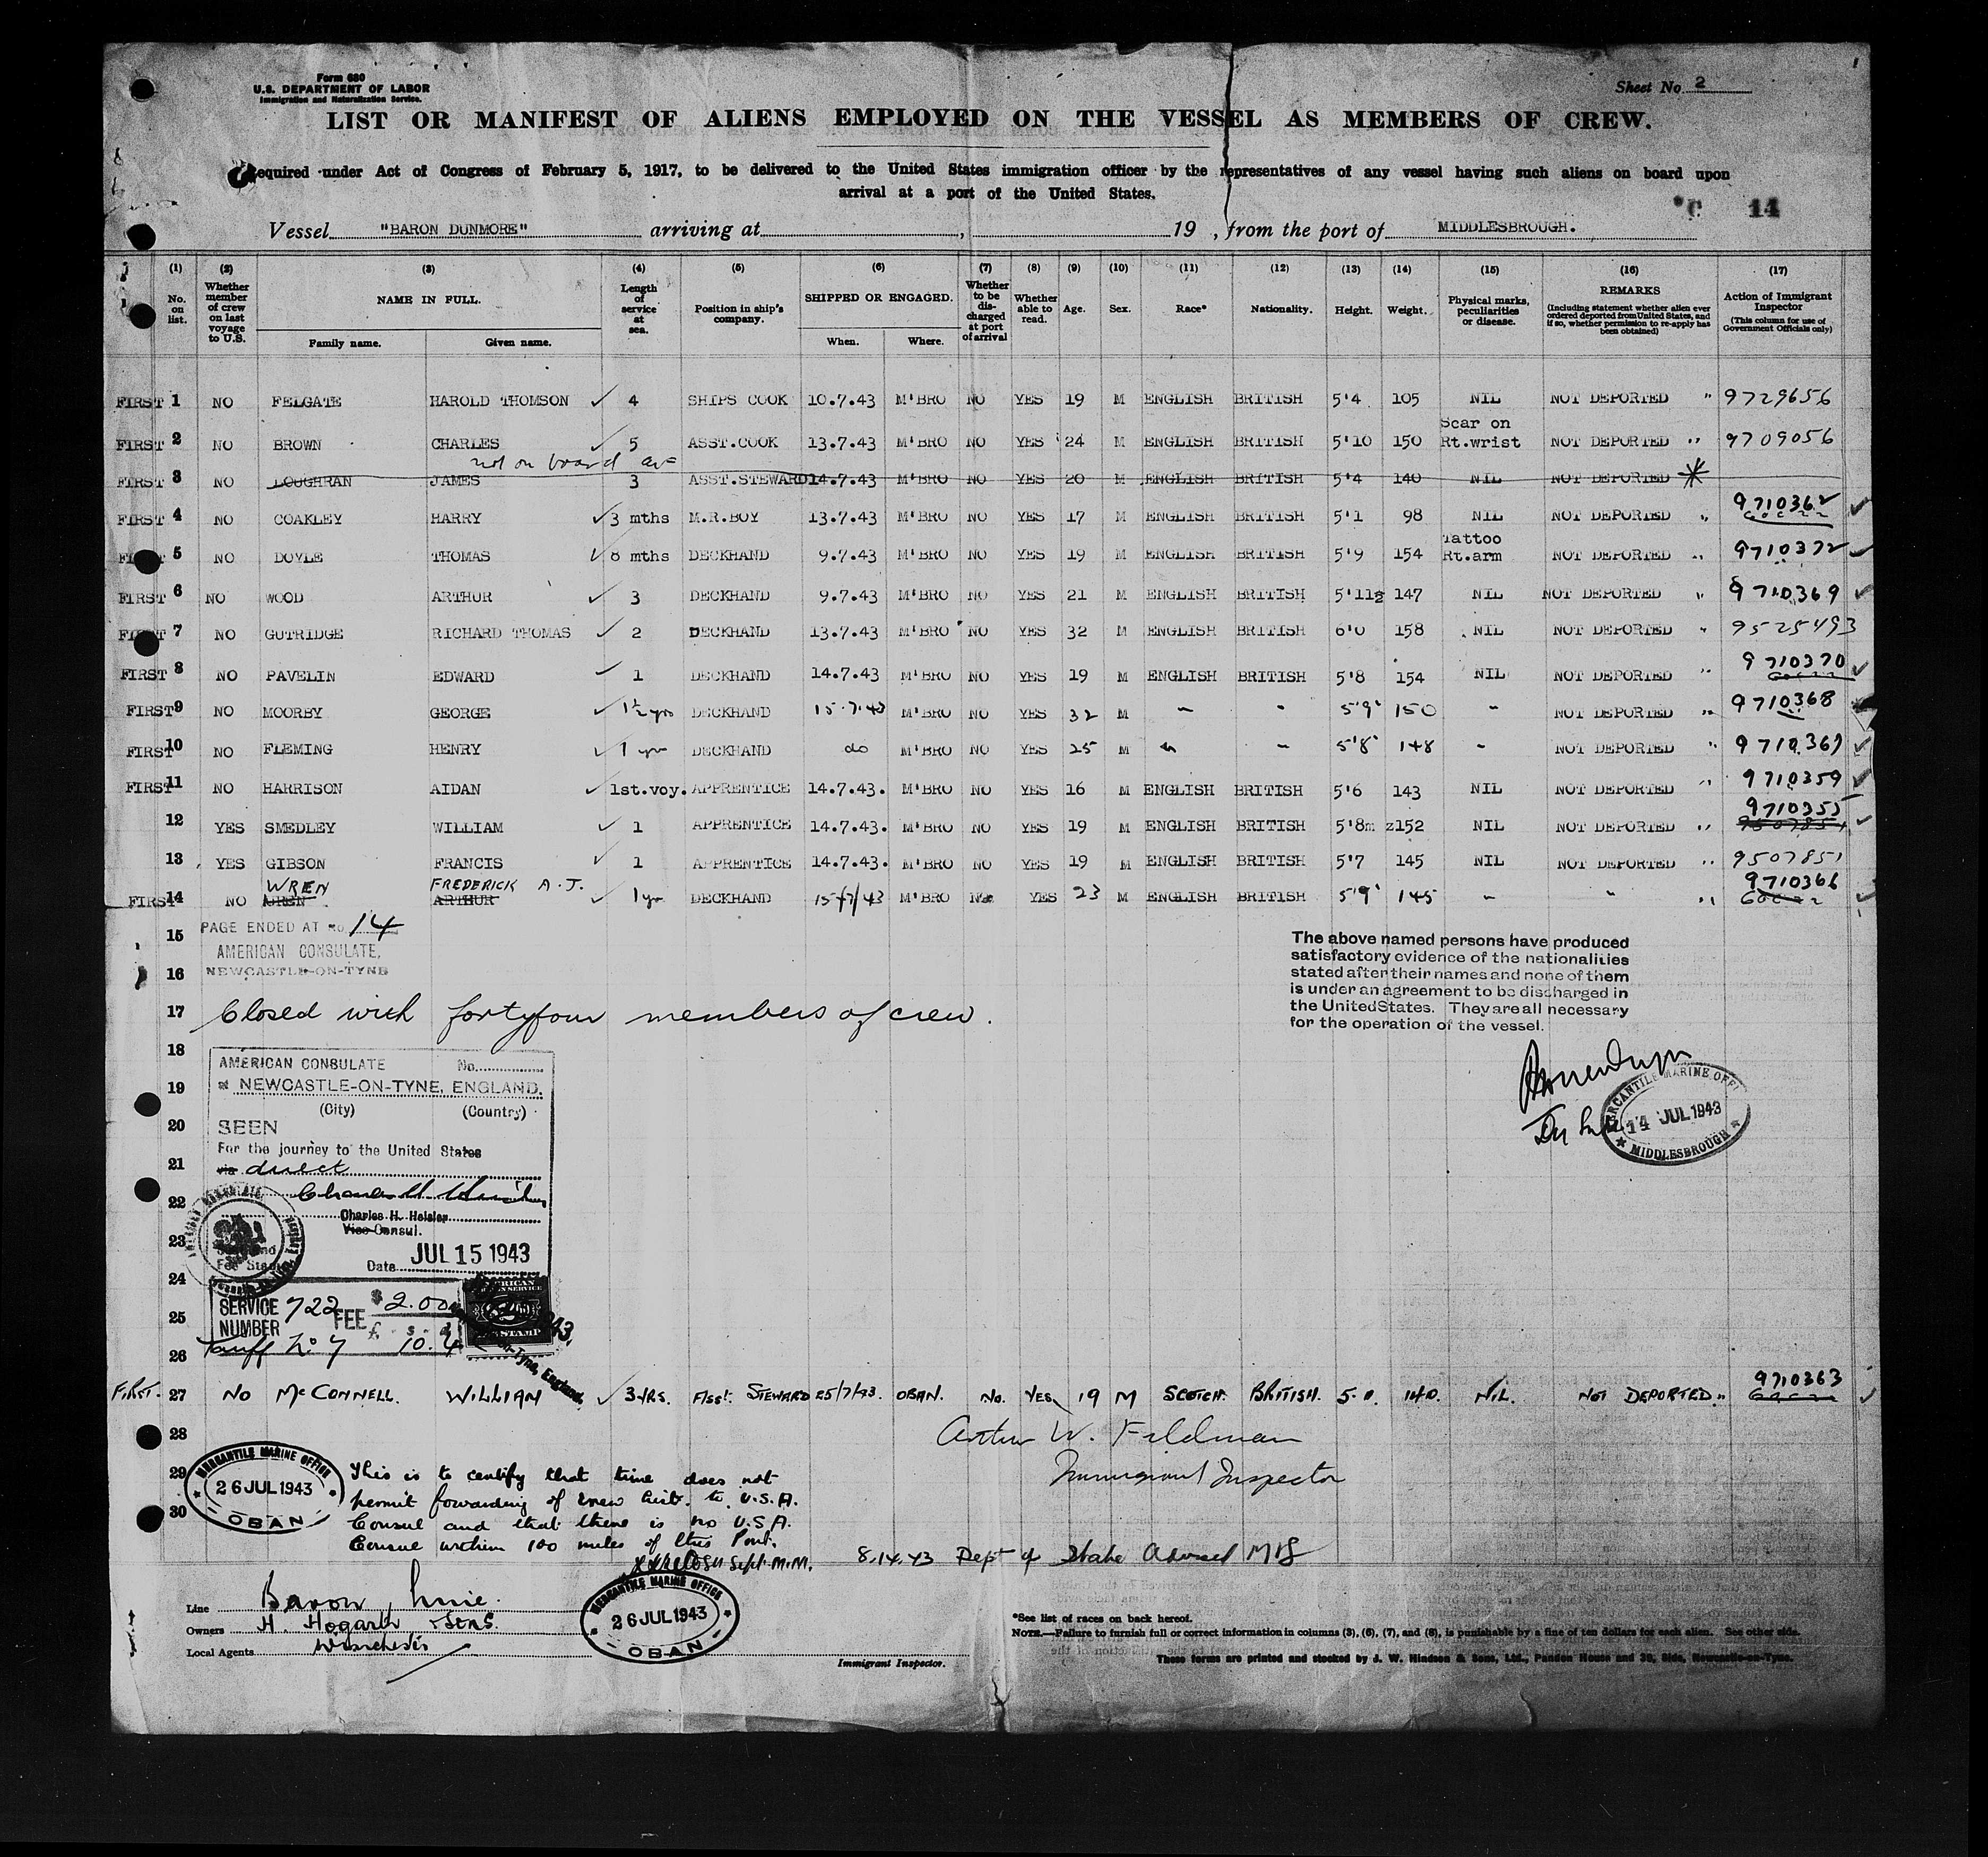 Form 680
U.S. DEPARTMENT OF LABOR
Immigration and Naturalization Service.
Sheet No. 2
LIST OR MANIFEST OF ALIENS EMPLOYED ON THE VESSEL AS MEMBERS OF CREW.
Required under Act of Congress of February 5, 1917, to be delivered to the United States immigration officer by the representatives of any vessel having such aliens on board upon
arrival at a port of the United States.
14
Vessel "BARON DUNMORE" arriving at , 19 , from the port of MIDDLESBROUGH.
(1) No. on list.
(2) Whether member of crew on last voyage to U.S.
(3) NAME IN FULL. Family name. Given name.
(4) Length of service at sea.
(5) Position in ship's company.
(6) SHIPPED OR ENGAGED. When. Where.
(7) Whether to be discharged at port of arrival
(8) Whether able to read.
(9) Age.
(10) Sex.
(11) Race*
(12) Nationality.
(13) Height.
(14) Weight.
(15) Physical marks, peculiarities or disease.
(16) REMARKS (Including statement whether alien ever ordered deported from United States, and if so, whether permission to re-apply has been obtained)
(17) Action of Immigrant Inspector (This column for use of Government Officials only)
FIRST 1 NO FELGATE HAROLD THOMSON ✓ 4 SHIPS COOK 10.7.43 M'BRO NO YES 19 M ENGLISH BRITISH 5'4 105 NIL NOT DEPORTED " 9729656
FIRST 2 NO BROWN CHARLES ✓ 5 ASST.COOK 13.7.43 M'BRO NO YES 24 M ENGLISH BRITISH 5'10 150 Scar on Rt.wrist NOT DEPORTED " 9709056
not on board
FIRST 3 NO LOUGHRAN JAMES 3 ASST.STEWARD 14.7.43 M'BRO NO YES 20 M ENGLISH BRITISH 5'4 140 NIL NOT DEPORTED *
FIRST 4 NO COAKLEY HARRY ✓ 3 mths M.R.BOY 13.7.43 M'BRO NO YES 17 M ENGLISH BRITISH 5'1 98 NIL NOT DEPORTED " 9710362 ✓
FIRST 5 NO DOYLE THOMAS ✓ 8 mths DECKHAND 9.7.43 M'BRO NO YES 19 M ENGLISH BRITISH 5'9 154 Tattoo Rt.arm NOT DEPORTED " 9710372 ✓
FIRST 6 NO WOOD ARTHUR ✓ 3 DECKHAND 9.7.43 M'BRO NO YES 21 M ENGLISH BRITISH 5'11½ 147 NIL NOT DEPORTED " 9710369 ✓
FIRST 7 NO GUTRIDGE RICHARD THOMAS ✓ 2 DECKHAND 13.7.43 M'BRO NO YES 32 M ENGLISH BRITISH 6'0 158 NIL NOT DEPORTED " 9525493
FIRST 8 NO PAVELIN EDWARD ✓ 1 DECKHAND 14.7.43 M'BRO NO YES 19 M ENGLISH BRITISH 5'8 154 NIL NOT DEPORTED " 9710370 ✓
FIRST 9 NO MOORBY GEORGE ✓ 1½ yrs DECKHAND 15.7.43 M'BRO NO YES 32 M " " 5'9' 150 - NOT DEPORTED " 9710368
FIRST 10 NO FLEMING HENRY ✓ 1 yr DECKHAND do M'BRO NO YES 25 M " " 5'8' 148 - NOT DEPORTED " 9710367 ✓
FIRST 11 NO HARRISON AIDAN ✓ 1st.voy. APPRENTICE 14.7.43. M'BRO NO YES 16 M ENGLISH BRITISH 5'6 143 NIL NOT DEPORTED " 9710359 ✓
12 YES SMEDLEY WILLIAM ✓ 1 APPRENTICE 14.7.43. M'BRO NO YES 19 M ENGLISH BRITISH 5'8m z152 NIL NOT DEPORTED " 9710355 9507851 ✓
13 YES GIBSON FRANCIS ✓ 1 APPRENTICE 14.7.43. M'BRO NO YES 19 M ENGLISH BRITISH 5'7 145 NIL NOT DEPORTED " 9507851
WREN FREDERICK A.J.
FIRST 14 NO UREN ARTHUR ✓ 1 yr DECKHAND 15/7/43 M'BRO No YES 23 M ENGLISH BRITISH 5'9' 145 - " " 9710366 ✓
15 PAGE ENDED AT No. 14
AMERICAN CONSULATE,
16 NEWCASTLE-ON-TYNE
The above named persons have produced
satisfactory evidence of the nationalities
stated after their names and none of them
is under an agreement to be discharged in
the United States. They are all necessary
for the operation of the vessel.
17 Closed with fortyfour members of crew.
18 AMERICAN CONSULATE No.
19 at NEWCASTLE-ON-TYNE, ENGLAND.
(City) (Country)
20 SEEN
For the journey to the United States
21 via direct
22
Charles H. Heisler
Vice Consul.
23
Date JUL 15 1943
24
25 SERVICE NUMBER 722 FEE $2.00
£ s. d.
26 Tariff No 7 10.
MERCANTILE MARINE OFFICE
14 JUL 1943
MIDDLESBROUGH
FIRST. 27 NO McCONNELL. WILLIAM ✓ 3 YRS. ASST. STEWARD 25/7/43. OBAN. No. YES 19 M SCOTCH. BRITISH. 5.0. 140. NIL. NOT DEPORTED " 9710363 ✓
28 Arthur W. Feldman
29 Immigrant Inspector
30
MERCANTILE MARINE OFFICE
26 JUL 1943
OBAN
This is to certify that time does not
permit forwarding of crew list to U.S.A.
Consul and that there is no U.S.A.
Consul within 100 miles of this Port.
Supt. M.M.
8.14.43 Dept of State advised
Line Baron Line.
Owners H. Hogarth & Sons.
Local Agents
MERCANTILE MARINE OFFICE
26 JUL 1943
OBAN
Immigrant Inspector.
*See list of races on back hereof.
NOTE.—Failure to furnish full or correct information in columns (3), (6), (7), and (8), is punishable by a fine of ten dollars for each alien. See other side.
These forms are printed and stocked by J. W. Hindson & Sons, Ltd., Pandon House and 39, Side, Newcastle-on-Tyne.